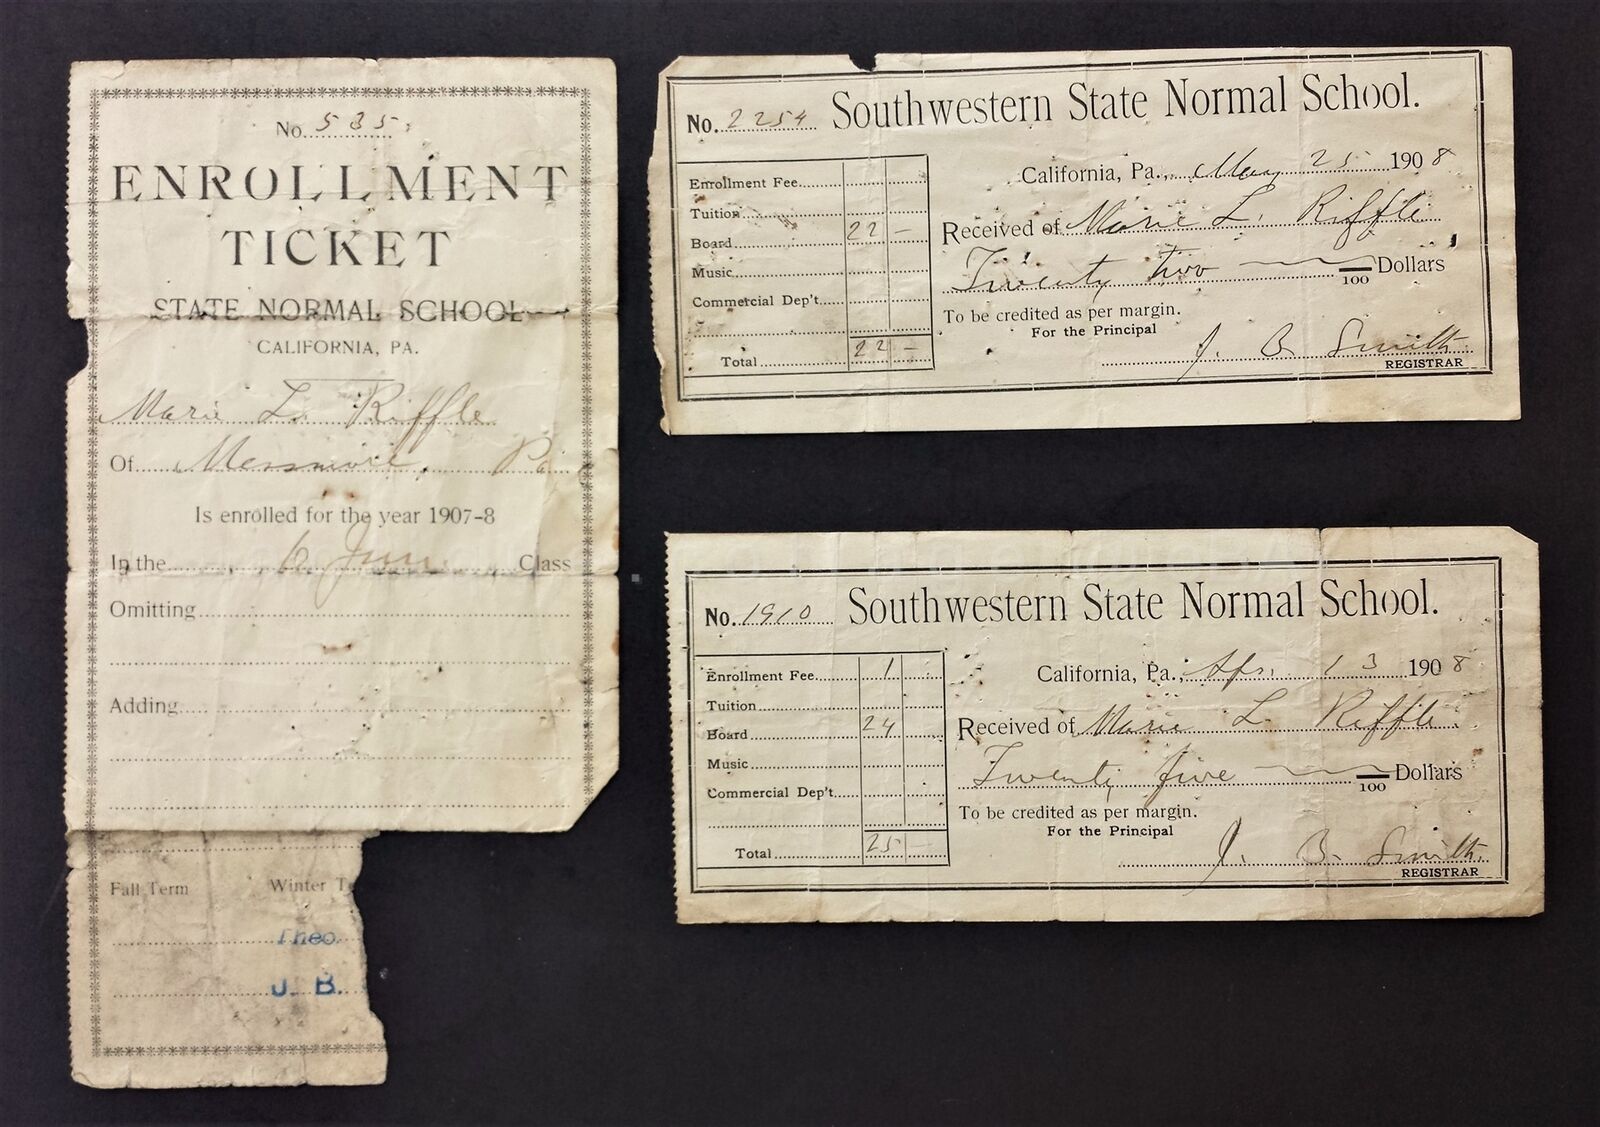 No. 535
ENROLLMENT
TICKET
STATE NORMAL SCHOOL
CALIFORNIA, PA.
Marie L. Riffle
Of Messmore, Pa.
Is enrolled for the year 1907-8
In the Jun. Class
Omitting
Adding
Fall Term Winter T
Theo.
J. B.
No. 2254 Southwestern State Normal School.
California, Pa., May 25 1908
Enrollment Fee
Tuition
Board 22 —
Music
Commercial Dep't
Total 22 —
Received of Marie L. Riffle
Twenty two — /100 Dollars
To be credited as per margin.
For the Principal
J. B. Smith
REGISTRAR
No. 1910 Southwestern State Normal School.
California, Pa., Apr. 13 1908
Enrollment Fee 1
Tuition
Board 24
Music
Commercial Dep't
Total 25 —
Received of Marie L. Riffle
Twenty five — /100 Dollars
To be credited as per margin.
For the Principal
J. B. Smith
REGISTRAR